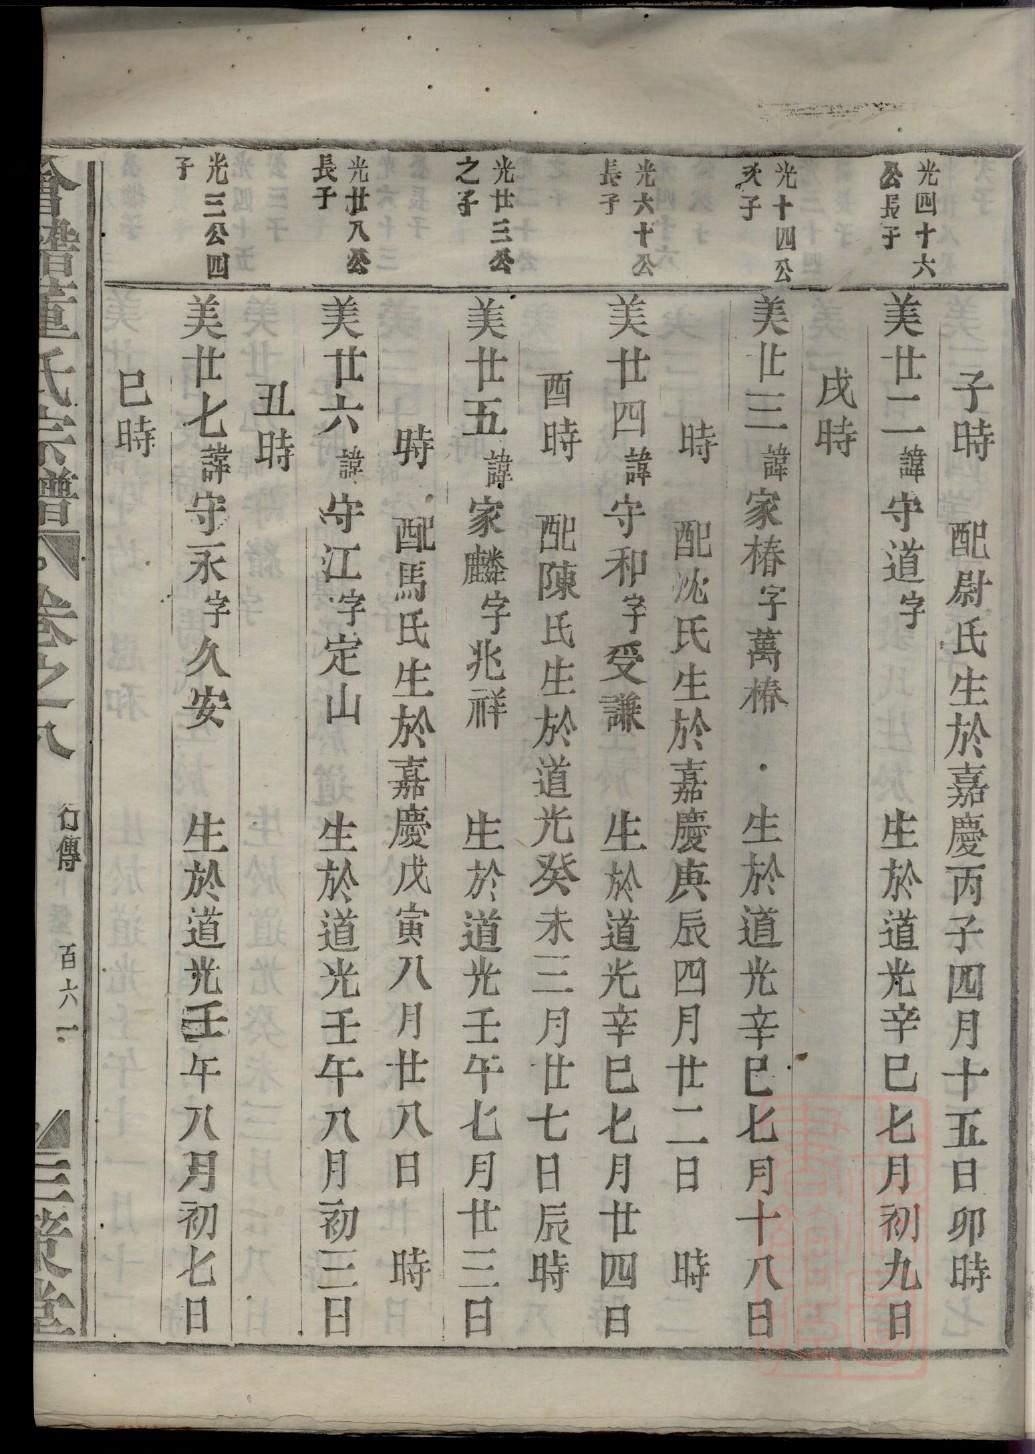 子時　配尉氏生於嘉慶丙子四月十五日卯時
光四十六
公長子
美廿二諱守道字　生於道光辛巳七月初九日
戌時
光十四公
次子
美廿三諱家椿字萬椿　生於道光辛巳七月十八日
時　配沈氏生於嘉慶庚辰四月廿二日　時
光六十公
長子
美廿四諱守和字受謙　生於道光辛巳七月廿四日
酉時　配陳氏生於道光癸未三月廿七日辰時
光廿三公
之子
美廿五諱家麟字兆祥　生於道光壬午七月廿三日
時　配馬氏生於嘉慶戊寅八月廿八日　時
光廿八公
長子
美廿六諱守江字定山　生於道光壬午八月初三日
丑時
光三公四
子
美廿七諱守永字久安　生於道光壬午八月初七日
巳時
董氏宗譜　卷之八　行傳　百六一　三策堂